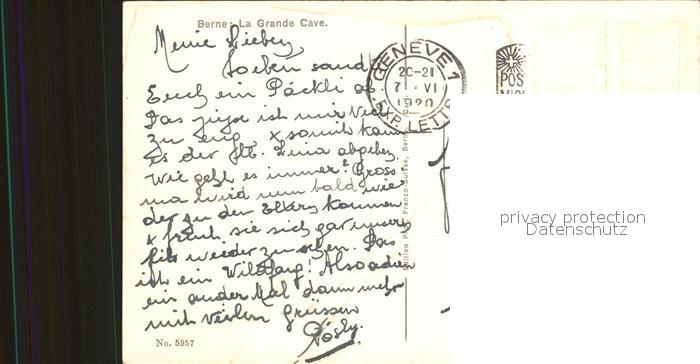 Berne: La Grande Cave.
Meine Lieben,
Soeben sand
Euch ein Päckli ab.
Das ist mir viel
zu eng, & somit kann
es der abgeben.
Wie geht es immer? Gross
ma wird nun bald wie
der zu den Eltern kommen
& freut sie sich gar unsern
wieder zu sehen. Das
ist ein Wildfang! Also adieu
ein ander Mal dann mehr
mit vielen Grüssen
Rösly.
No. 5957
GENEVE 1
EXP. LETT
20-21
7. VI
1920
POS
Franco-Suisse, Bern
privacy protection
Datenschutz